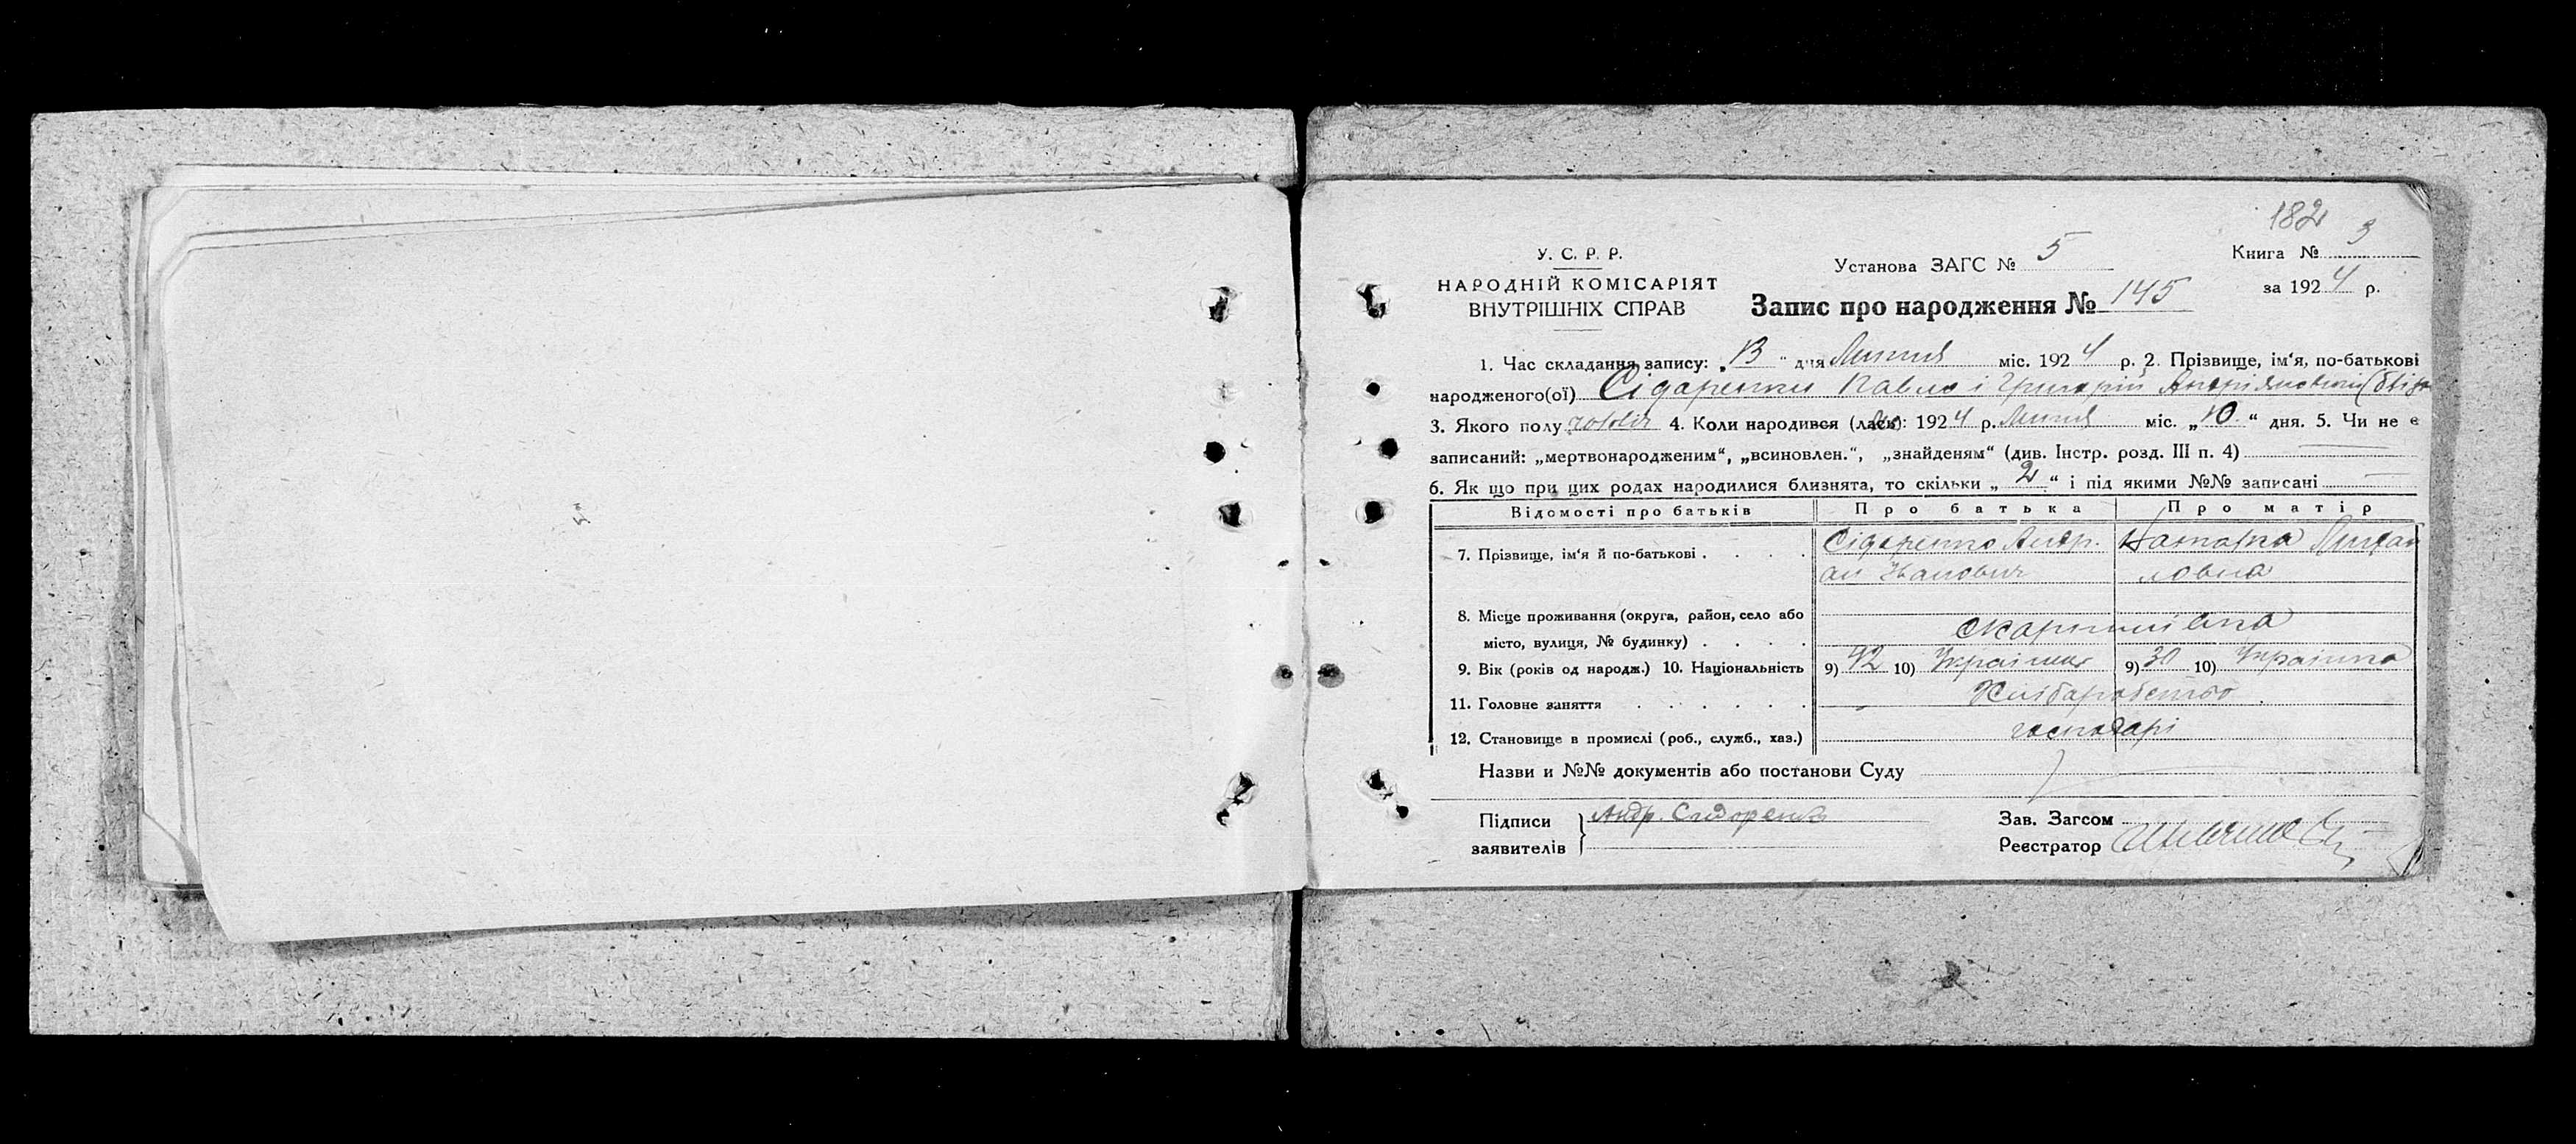 182
У. С. Р. Р.
НАРОДНІЙ КОМІСАРІЯТ
ВНУТРІШНІХ СПРАВ
Установа ЗАГС № 5
Книга № 3
за 1924 р.
Запис про народження № 145
1. Час складання запису: „13“ дня Липня міс. 1924 р. 2. Прізвище, ім‘я, по-батькові
народженого(ої) Сідаренки Павло і Григорій
3. Якого полу 4. Коли народився (лась): 1924 р. Липня міс. „10“ дня. 5. Чи не є
записаний: „мертвонародженим“, „всиновлен.“, „знайденям“ (див. Інстр. розд. III п. 4)
6. Як що при цих родах народилися близнята, то скільки „2“ і під якими №№ записані
Відомості про батьків Про батька Про матір
7. Прізвище, ім‘я й по-батькові . . . . Сідаренко Андр. Наталка Михай
ан Іванович ловна
8. Місце проживання (округа, район, село або
місто, вулиця, № будинку) . . . .
9. Вік (років од народж.) 10. Національність 9) 42 10) Украінец 9) 30 10) Украінка
11. Головне заняття . . . . . . Хлібаробство
12. Становище в промислі (роб., служб., хаз.) господарі
Назви и №№ документів або постанови Суду
Підписи
заявителів
Андр. Сидоренко
Зав. Загсом
Реєстратор